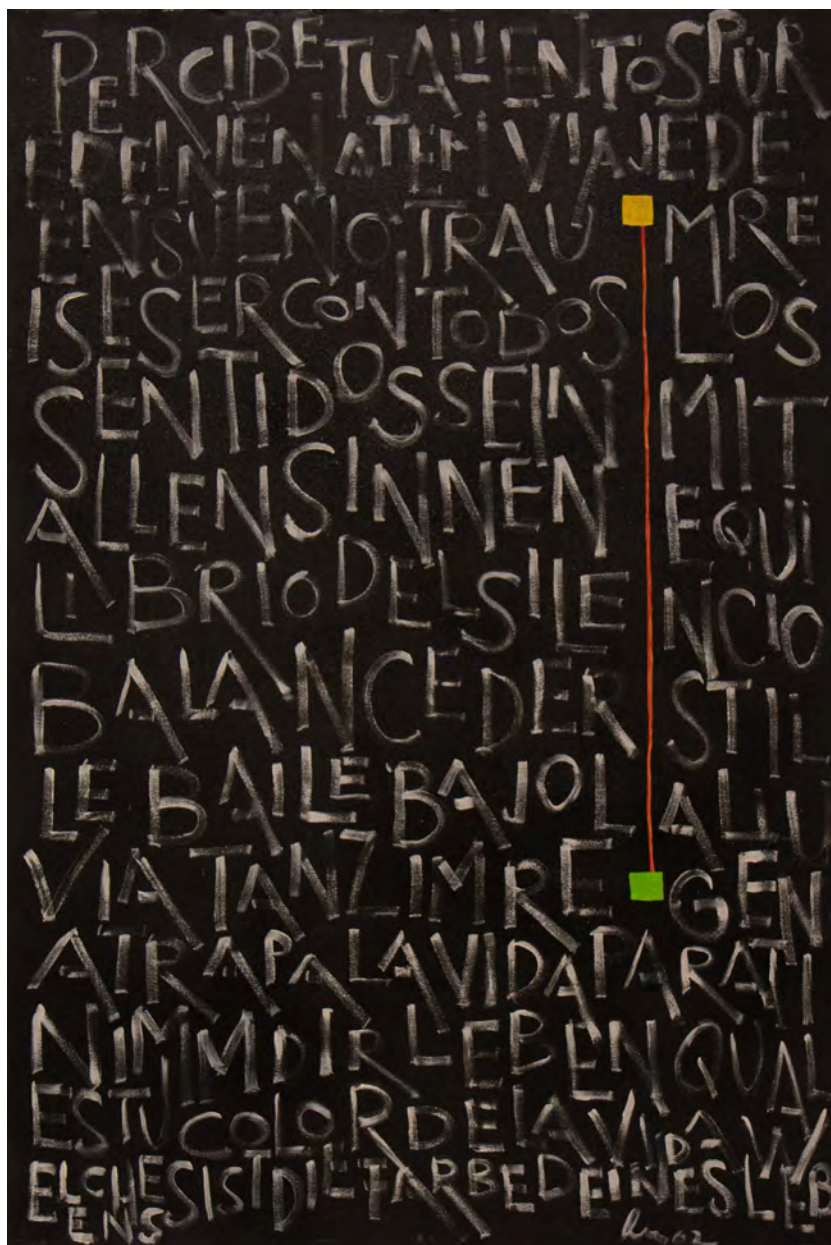 PERCIBETUALIENTOSPÜR
EDEINENATEMVIAJEDE
ENSUEÑOTRAU MRE
ISESERCONTODOS LOS
SENTIDOSSEIN MIT
ALLENSINNEN EQUI
LIBRIODELSILE NCIO
BALANCEDER STIL
LE BAILE BAJOL ALLU
VIATANZIMRE GEN
ATRAPALAVIDAPARATI
NIMMDIRLEBENQUAL
ESTUCOLORDELAVIDAW
ELCHESISTDIEFARBEDEINESLEB
ENS